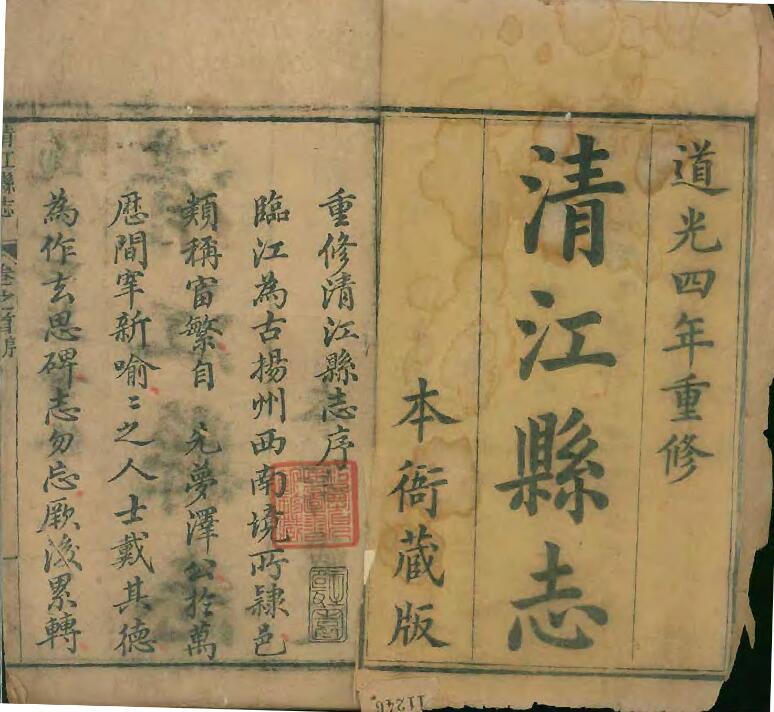 道光四年重修
清江縣志
本衙藏版
重修清江縣志序
臨江為古揚州西南境所隸邑
類稱富繁自 先夢澤公於萬
歷間宰新喻〻之人士戴其德
為作去思碑志勿忘厥後累轉
清江縣志 卷之首序
11246